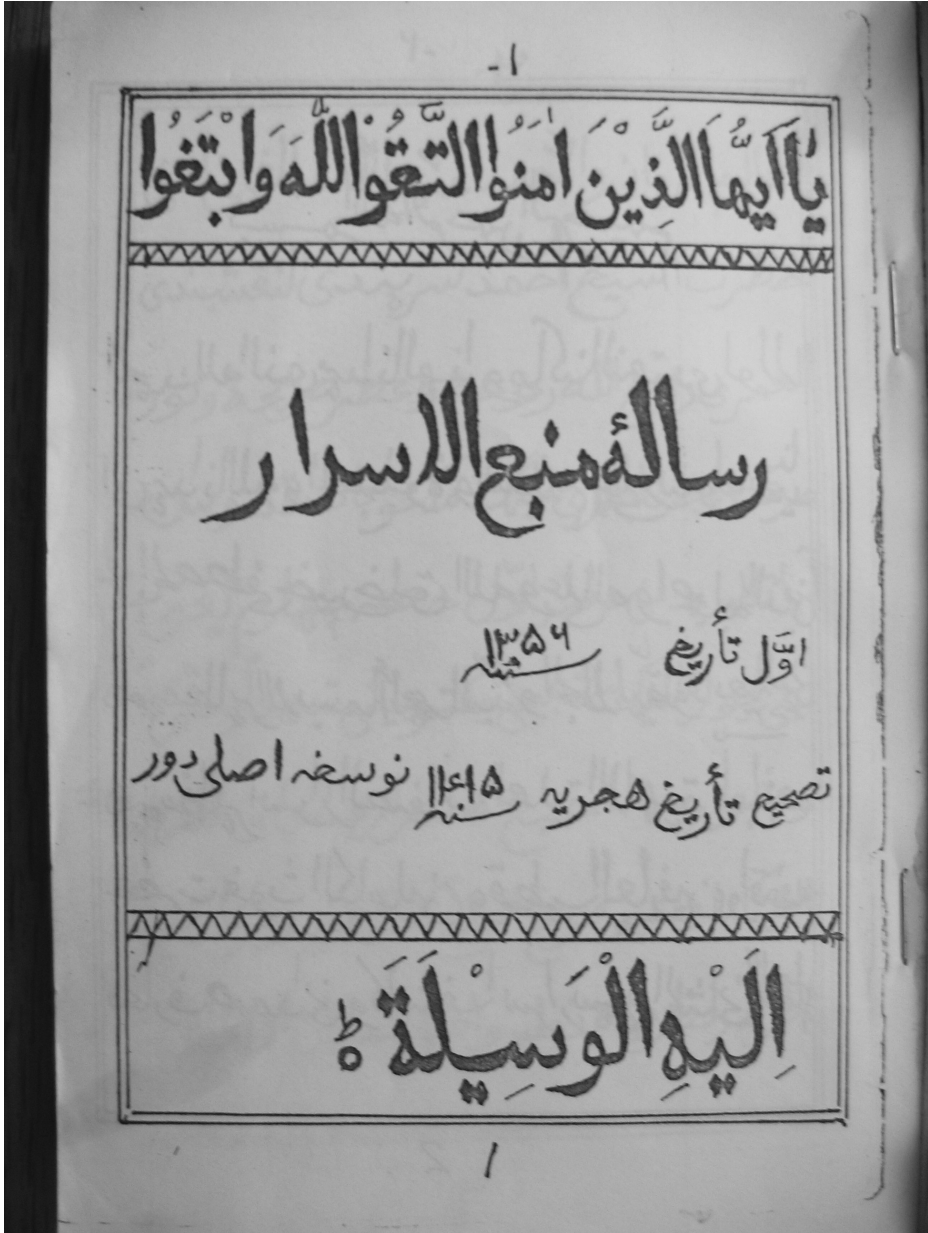 ١-
يٰٓاَ اَيُّهَا الَّذِيْنَ اٰمَنُوا التَّقُوْا اللّٰهَ وَابْتَغُوا
رسالۀ منبع الاسرار
اوّل تأريخ سنه ١٣۵۶
تصحيح تأريخ هجريه سنه ١٤١۵ نوسخه اصلى دور
اِلَيْهِ الْوَسِيْلَةَ ط
١